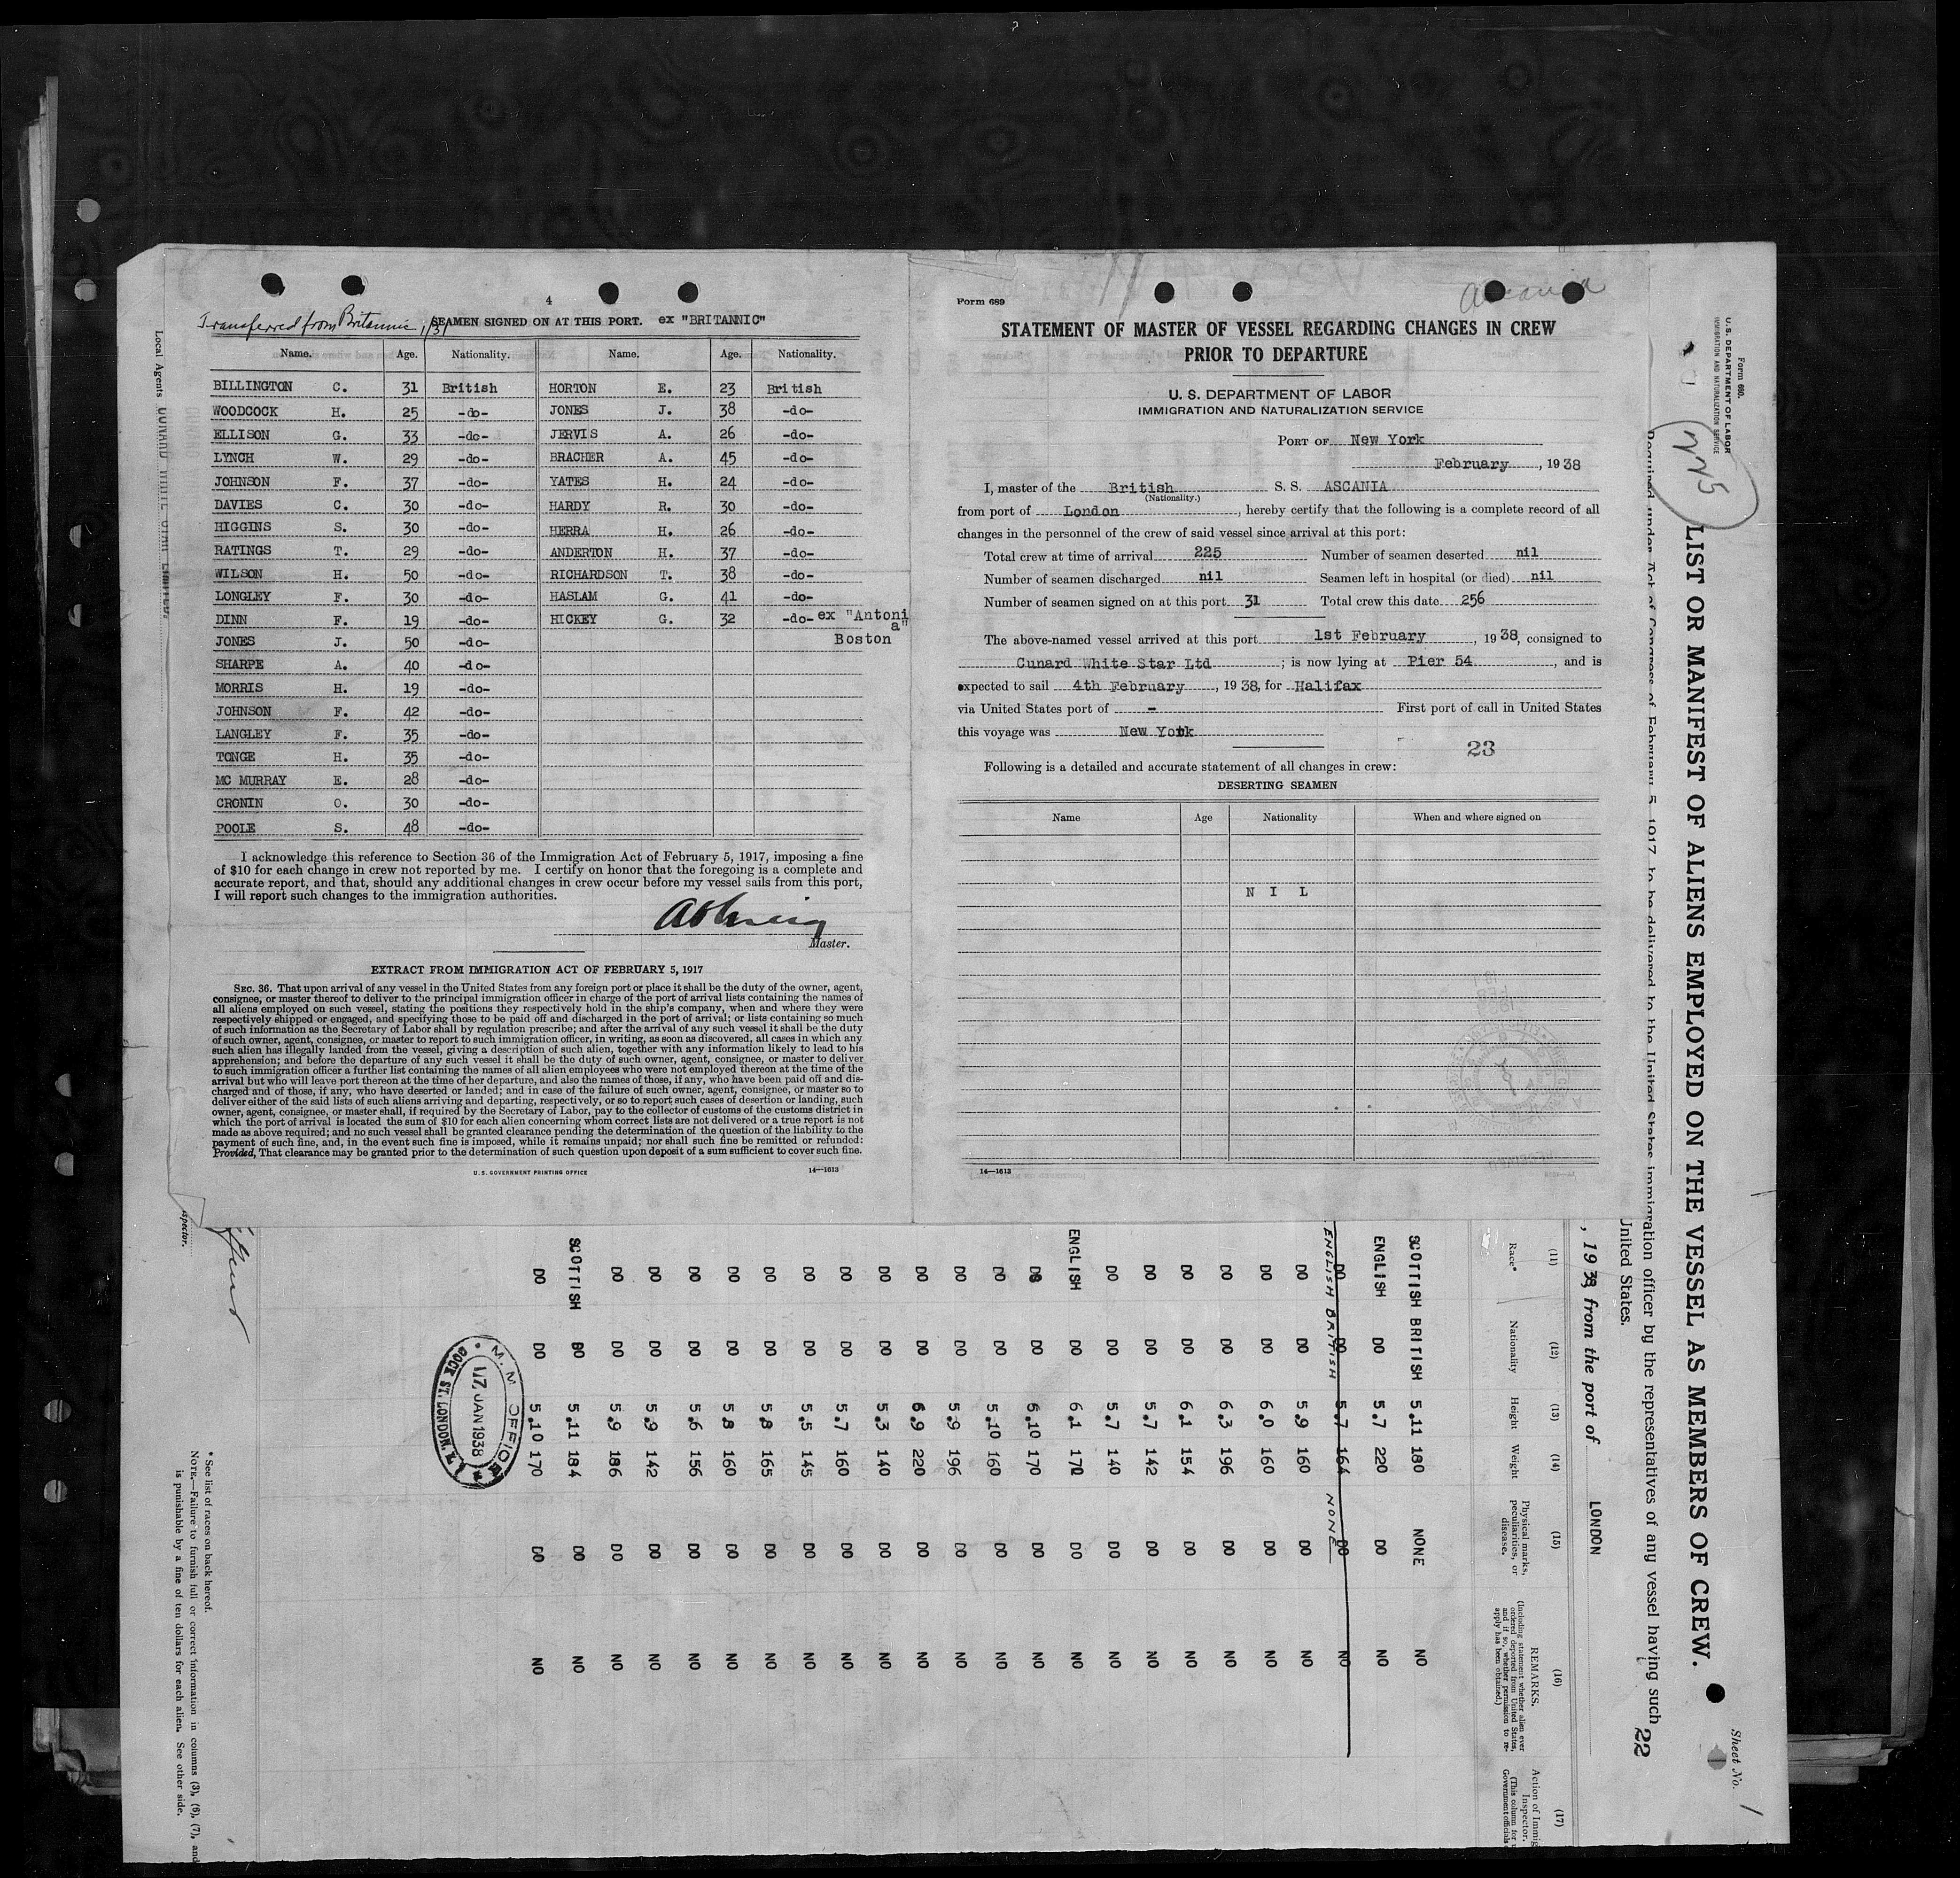 4
Transferred from Britannic, 
SEAMEN SIGNED ON AT THIS PORT. ex "BRITANNIC"
Name. Age. Nationality. Name. Age. Nationality.
BILLINGTON C. 31 British HORTON E. 23 British
WOODCOCK H. 25 -do- JONES J. 38 -do-
ELLISON G. 33 -do- JERVIS A. 26 -do-
LYNCH W. 29 -do- BRACHER A. 45 -do-
JOHNSON F. 37 -do- YATES H. 24 -do-
DAVIES C. 30 -do- HARDY R. 30 -do-
HIGGINS S. 30 -do- HERRA H. 26 -do-
RATINGS T. 29 -do- ANDERTON H. 37 -do-
WILSON H. 50 -do- RICHARDSON T. 38 -do-
LONGLEY F. 30 -do- HASLAM G. 41 -do-
DINN F. 19 -do- HICKEY G. 32 -do- ex "Antoni
a"
JONES J. 50 -do- Boston
SHARPE A. 40 -do-
MORRIS H. 19 -do-
JOHNSON F. 42 -do-
LANGLEY F. 35 -do-
TONGE H. 35 -do-
MC MURRAY E. 28 -do-
CRONIN O. 30 -do-
POOLE S. 48 -do-
I acknowledge this reference to Section 36 of the Immigration Act of February 5, 1917, imposing a fine
of $10 for each change in crew not reported by me. I certify on honor that the foregoing is a complete and
accurate report, and that, should any additional changes in crew occur before my vessel sails from this port,
I will report such changes to the immigration authorities.
Master.
EXTRACT FROM IMMIGRATION ACT OF FEBRUARY 5, 1917
SEC. 36. That upon arrival of any vessel in the United States from any foreign port or place it shall be the duty of the owner, agent,
consignee, or master thereof to deliver to the principal immigration officer in charge of the port of arrival lists containing the names of
all aliens employed on such vessel, stating the positions they respectively hold in the ship's company, when and where they were
respectively shipped or engaged, and specifying those to be paid off and discharged in the port of arrival; or lists containing so much
of such information as the Secretary of Labor shall by regulation prescribe; and after the arrival of any such vessel it shall be the duty
of such owner, agent, consignee, or master to report to such immigration officer, in writing, as soon as discovered, all cases in which any
such alien has illegally landed from the vessel, giving a description of such alien, together with any information likely to lead to his
apprehension; and before the departure of any such vessel it shall be the duty of such owner, agent, consignee, or master to deliver
to such immigration officer a further list containing the names of all alien employees who were not employed thereon at the time of the
arrival but who will leave port thereon at the time of her departure, and also the names of those, if any, who have been paid off and dis-
charged and of those, if any, who have deserted or landed; and in case of the failure of such owner, agent, consignee, or master so to
deliver either of the said lists of such aliens arriving and departing, respectively, or so to report such cases of desertion or landing, such
owner, agent, consignee, or master shall, if required by the Secretary of Labor, pay to the collector of customs of the customs district in
which the port of arrival is located the sum of $10 for each alien concerning whom correct lists are not delivered or a true report is not
made as above required; and no such vessel shall be granted clearance pending the determination of the question of the liability to the
payment of such fine, and, in the event such fine is imposed, while it remains unpaid; nor shall such fine be remitted or refunded:
Provided, That clearance may be granted prior to the determination of such question upon deposit of a sum sufficient to cover such fine.
U.S. GOVERNMENT PRINTING OFFICE 14—1613
Form 689
Ascania
STATEMENT OF MASTER OF VESSEL REGARDING CHANGES IN CREW
PRIOR TO DEPARTURE
U. S. DEPARTMENT OF LABOR
IMMIGRATION AND NATURALIZATION SERVICE
PORT OF New York
February , 1938
I, master of the British S. S. ASCANIA
(Nationality.)
from port of London , hereby certify that the following is a complete record of all
changes in the personnel of the crew of said vessel since arrival at this port:
Total crew at time of arrival 225 Number of seamen deserted nil
Number of seamen discharged nil Seamen left in hospital (or died) nil
Number of seamen signed on at this port 31 Total crew this date 256
The above-named vessel arrived at this port 1st February , 1938, consigned to
Cunard White Star Ltd ; is now lying at Pier 54 , and is
expected to sail 4th February , 1938, for Halifax
via United States port of - First port of call in United States
this voyage was New York
23
Following is a detailed and accurate statement of all changes in crew:
DESERTING SEAMEN
Name Age Nationality When and where signed on
N I L
14—1613
Form 680.
U. S. DEPARTMENT OF LABOR
IMMIGRATION AND NATURALIZATION SERVICE
225
Sheet No. 1
LIST OR MANIFEST OF ALIENS EMPLOYED ON THE VESSEL AS MEMBERS OF CREW.
Required under Act of Congress of February 5, 1917, to be delivered to the United States immigration officer by the representatives of any vessel having such
22
United States.
, 1938, from the port of LONDON
(11) (12) (13) (14) (15) (16) (17)
Race* Nationality Height Weight Physical marks, peculiarities, or disease. REMARKS. (Including statement whether alien ever ordered deported from United States, and if so, whether permission to re-apply has been obtained.) Action of Immig Inspector. (This column for Government officials
SCOTTISH BRITISH 5.11 180 NONE NO
ENGLISH DO 5.7 220 DO NO
DO DO 5.7 164 DO NO
ENGLISH BRITISH NONE
DO DO 5.9 160 DO NO
DO DO 6.0 160 DO NO
DO DO 6.3 196 DO NO
DO DO 6.1 154 DO NO
DO DO 5.7 142 DO NO
DO DO 5.7 140 DO NO
ENGLISH DO 6.1 170 DO NO
DO DO 5.10 170 DO NO
DO DO 5.10 160 DO NO
DO DO 5.9 196 DO NO
DO DO 6.9 220 DO NO
DO DO 5.3 140 DO NO
DO DO 5.7 160 DO NO
DO DO 5.5 145 DO NO
DO DO 5.8 165 DO NO
DO DO 5.8 160 DO NO
DO DO 5.6 156 DO NO
DO DO 5.9 142 DO NO
DO DO 5.9 186 DO NO
SCOTTISH DO 5.11 184 DO NO
DO DO 5.10 170 DO NO
M. M. OFFICE
17 JAN 1938
DOCK ST. LONDON, E.1
* See list of races on back hereof.
NOTE.—Failure to furnish full or correct information in columns (3), (6), (7), and
is punishable by a fine of ten dollars for each alien. See other side.
Local Agents CUNARD WHITE STAR LIMITED.
spector.